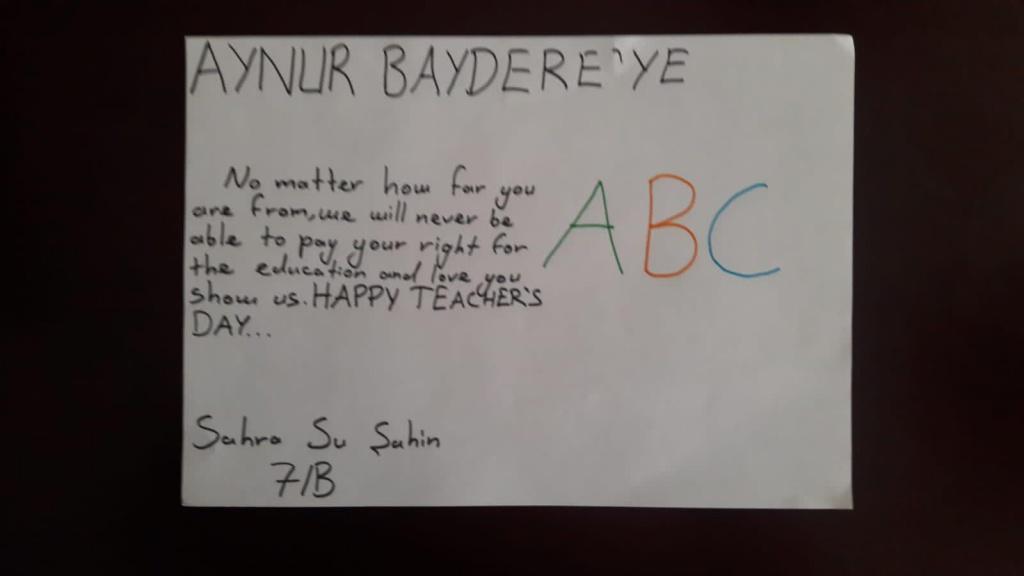 AYNUR BAYDERE'YE
No matter how far you
are from, we will never be
able to pay your right for
the education and love you
show us. HAPPY TEACHER'S
DAY...
ABC
Sahra Su Şahin
7/B